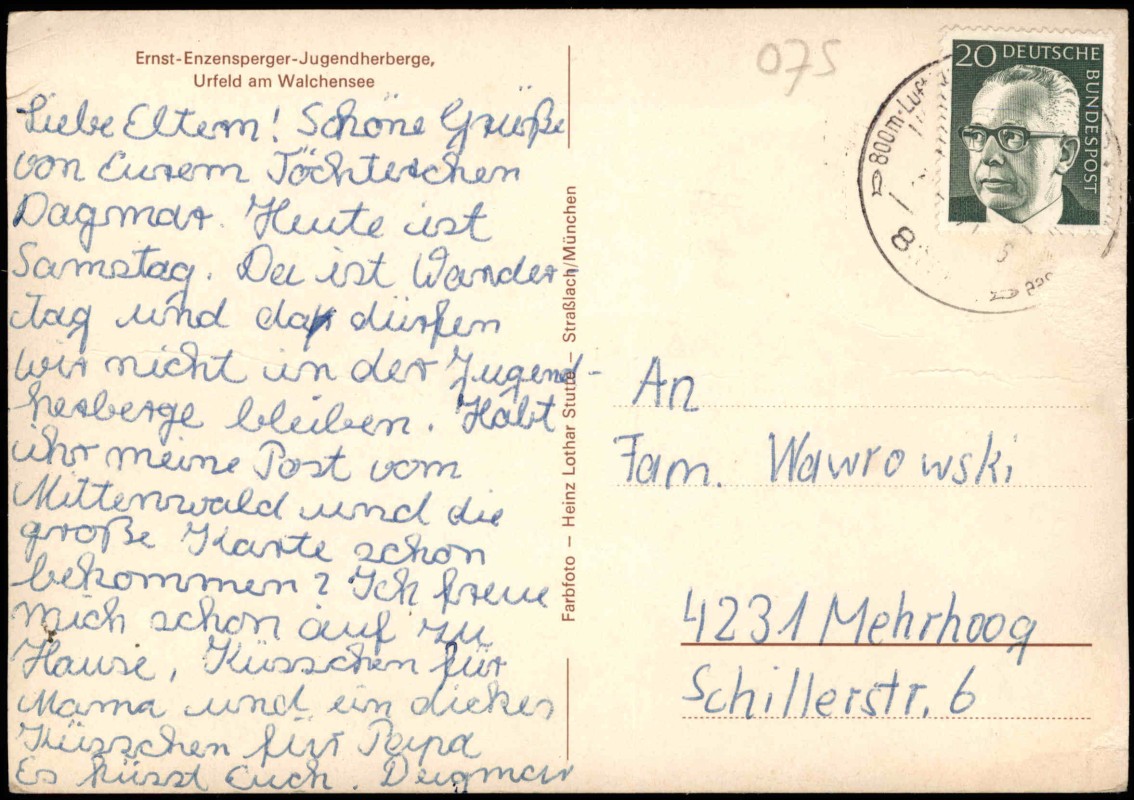 Ernst-Enzensperger-Jugendherberge,
Urfeld am Walchensee
Liebe Eltern! Schöne Grüße
von Eurem Töchterchen
Dagmar. Heute ist
Samstag. Da ist Wander-
tag und da dürfen
wir nicht in der Jugend-
herberge bleiben. Habt
ihr meine Post vom
Mittenwald und die
große Karte schon
bekommen? Ich freue
mich schon auf zu
Hause, Küsschen für
Mama und ein dickes
Küsschen für Papa
Es küsst Euch. Dagmar
Farbfoto – Heinz Lothar Stutte – Straßlach/München
075
20 DEUTSCHE
BUNDESPOST
800m·Luft
8
An
Fam. Wawrowski
4231 Mehrhoog
Schillerstr. 6